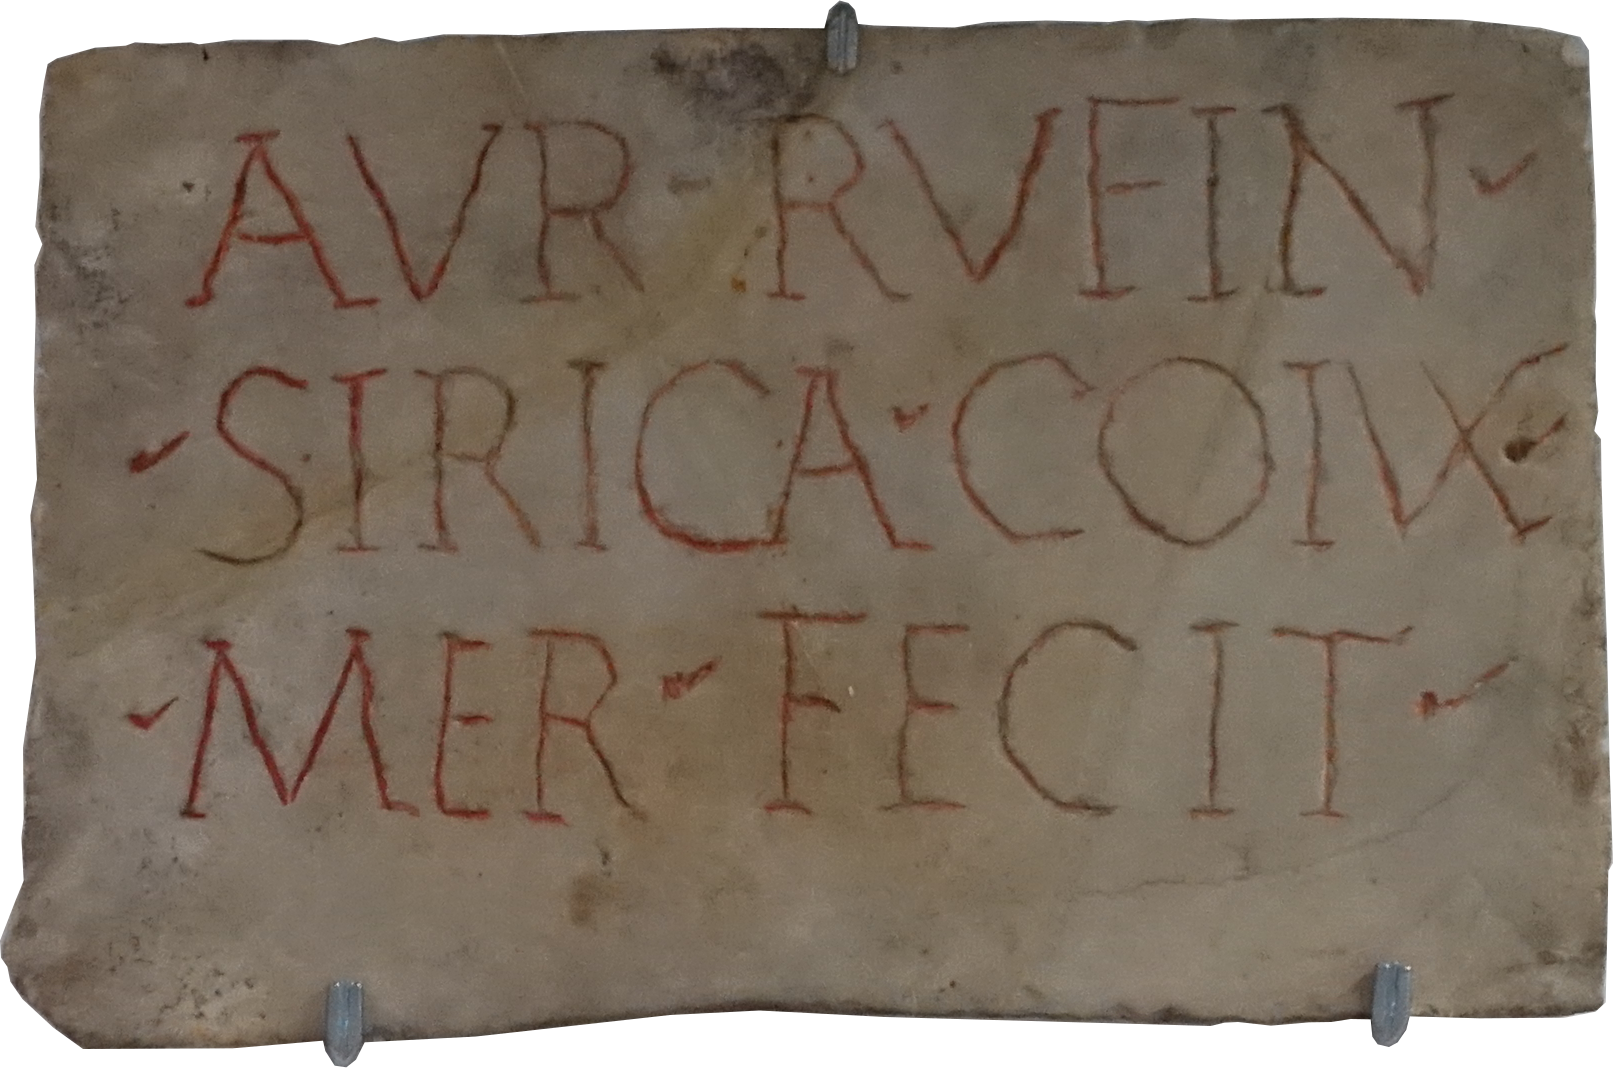 AVR · RVFIN ·
· SIRICA · COIVX ·
· MER · FECIT ·